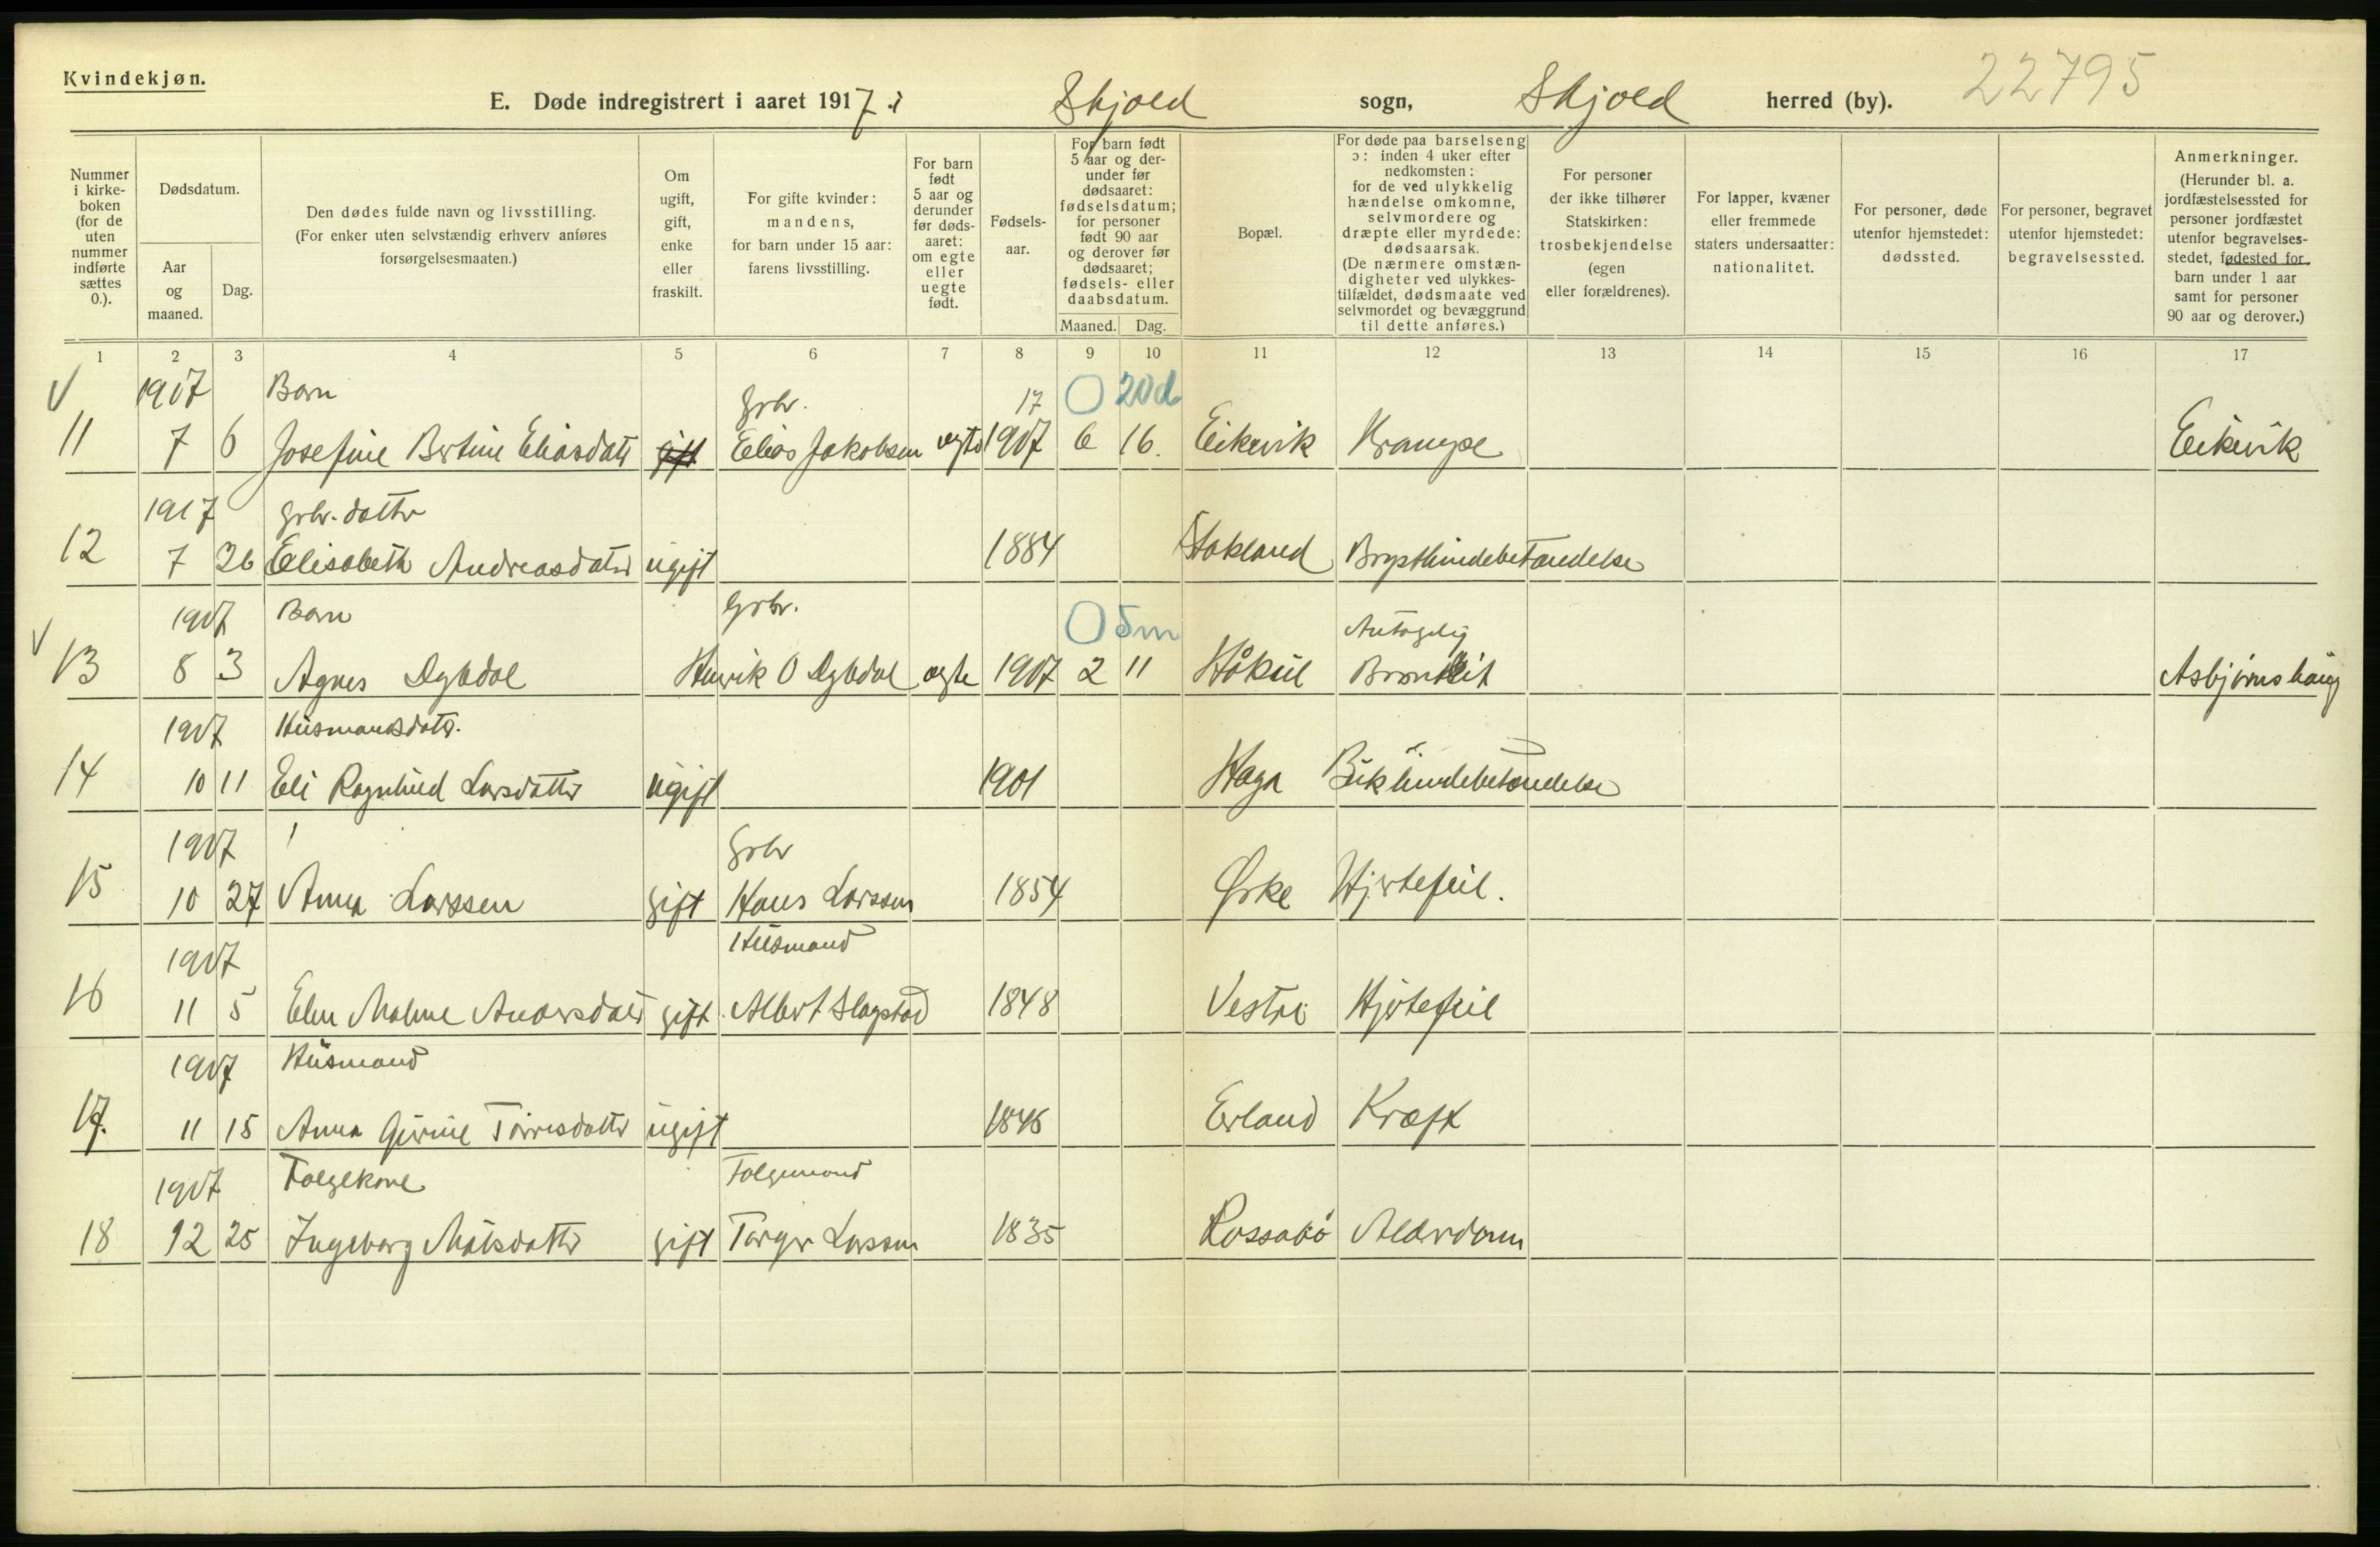 Kvindekjøn.
E. Døde indregistrert i aaret 1917. i Skjold sogn, Skjold herred (by). 22795
Nummer i kirke-boken (for de uten nummer indførte sættes 0.).
Dødsdatum.
Aar og maaned.
Dag.
Den dødes fulde navn og livsstilling. (For enker uten selvstændig erhverv anføres forsørgelsesmaaten.)
Om ugift, gift, enke eller fraskilt.
For gifte kvinder: mandens, for barn under 15 aar: farens livsstilling.
For barn født 5 aar og derunder før døds-aaret: om egte eller uegte født.
Fødsels-aar.
For barn født 5 aar og der-under før dødsaaret: fødselsdatum; for personer født 90 aar og derover før dødsaaret; fødsels- eller daabsdatum.
Maaned. Dag.
Bopæl.
For døde paa barselseng ɔ: inden 4 uker efter nedkomsten: for de ved ulykkelig hændelse omkomne, selvmordere og dræpte eller myrdede: dødsaarsak. (De nærmere omstæn-digheter ved ulykkes-tilfældet, dødsmaate ved selvmordet og bevæggrund til dette anføres.)
For personer der ikke tilhører Statskirken: trosbekjendelse (egen eller forældrenes).
For lapper, kvæner eller fremmede staters undersaatter: nationalitet.
For personer, døde utenfor hjemstedet: dødssted.
For personer, begravet utenfor hjemstedet: begravelsessted.
Anmerkninger. (Herunder bl. a. jordfæstelsessted for personer jordfæstet utenfor begravelses-stedet, fødested for barn under 1 aar samt for personer 90 aar og derover.)
1 2 3 4 5 6 7 8 9 10 11 12 13 14 15 16 17
V 1917 Barn Grbr. 17 0 20d
11 7 6 Josefine Bertine Eliasdatr gift Elias Jakobsen egte 1917 6 16. Eikevik Krampe Eikevik
1917 Grbr. datter
12 7 26 Elisabeth Andreasdatter ugift 1884 Stakland Brysthindebetændelse
V 1917 Barn Grbr. 0 5m Antagelig
13 8 3 Agnes Dybdal Henrik O Dybdal egte 1917 2 11 Bronkit Asbjørnshaug
1917 Husmandsdatr.
14 10 11 Eli Ragnhild Larsdatter ugift 1901 Haga Bukhindebetændelse
1917 Grbr
15 10 27 Anna Larssen gift Hans Larssen 1854 Ørke Hjertefeil.
1917 Husmand
16 11 5 Elen Malene Andersdatr gift Albert Slagstad 1848 Vestre Hjertefeil
1917 Husmand
17. 11 15 Anna Gurine Tørresdatter ugift 1846 Erland Kræft
1917 Folgekone Folgemand
18 12 25 Ingeborg Matsdatter gift Torger Larssen 1835 Rossabø Alderdom